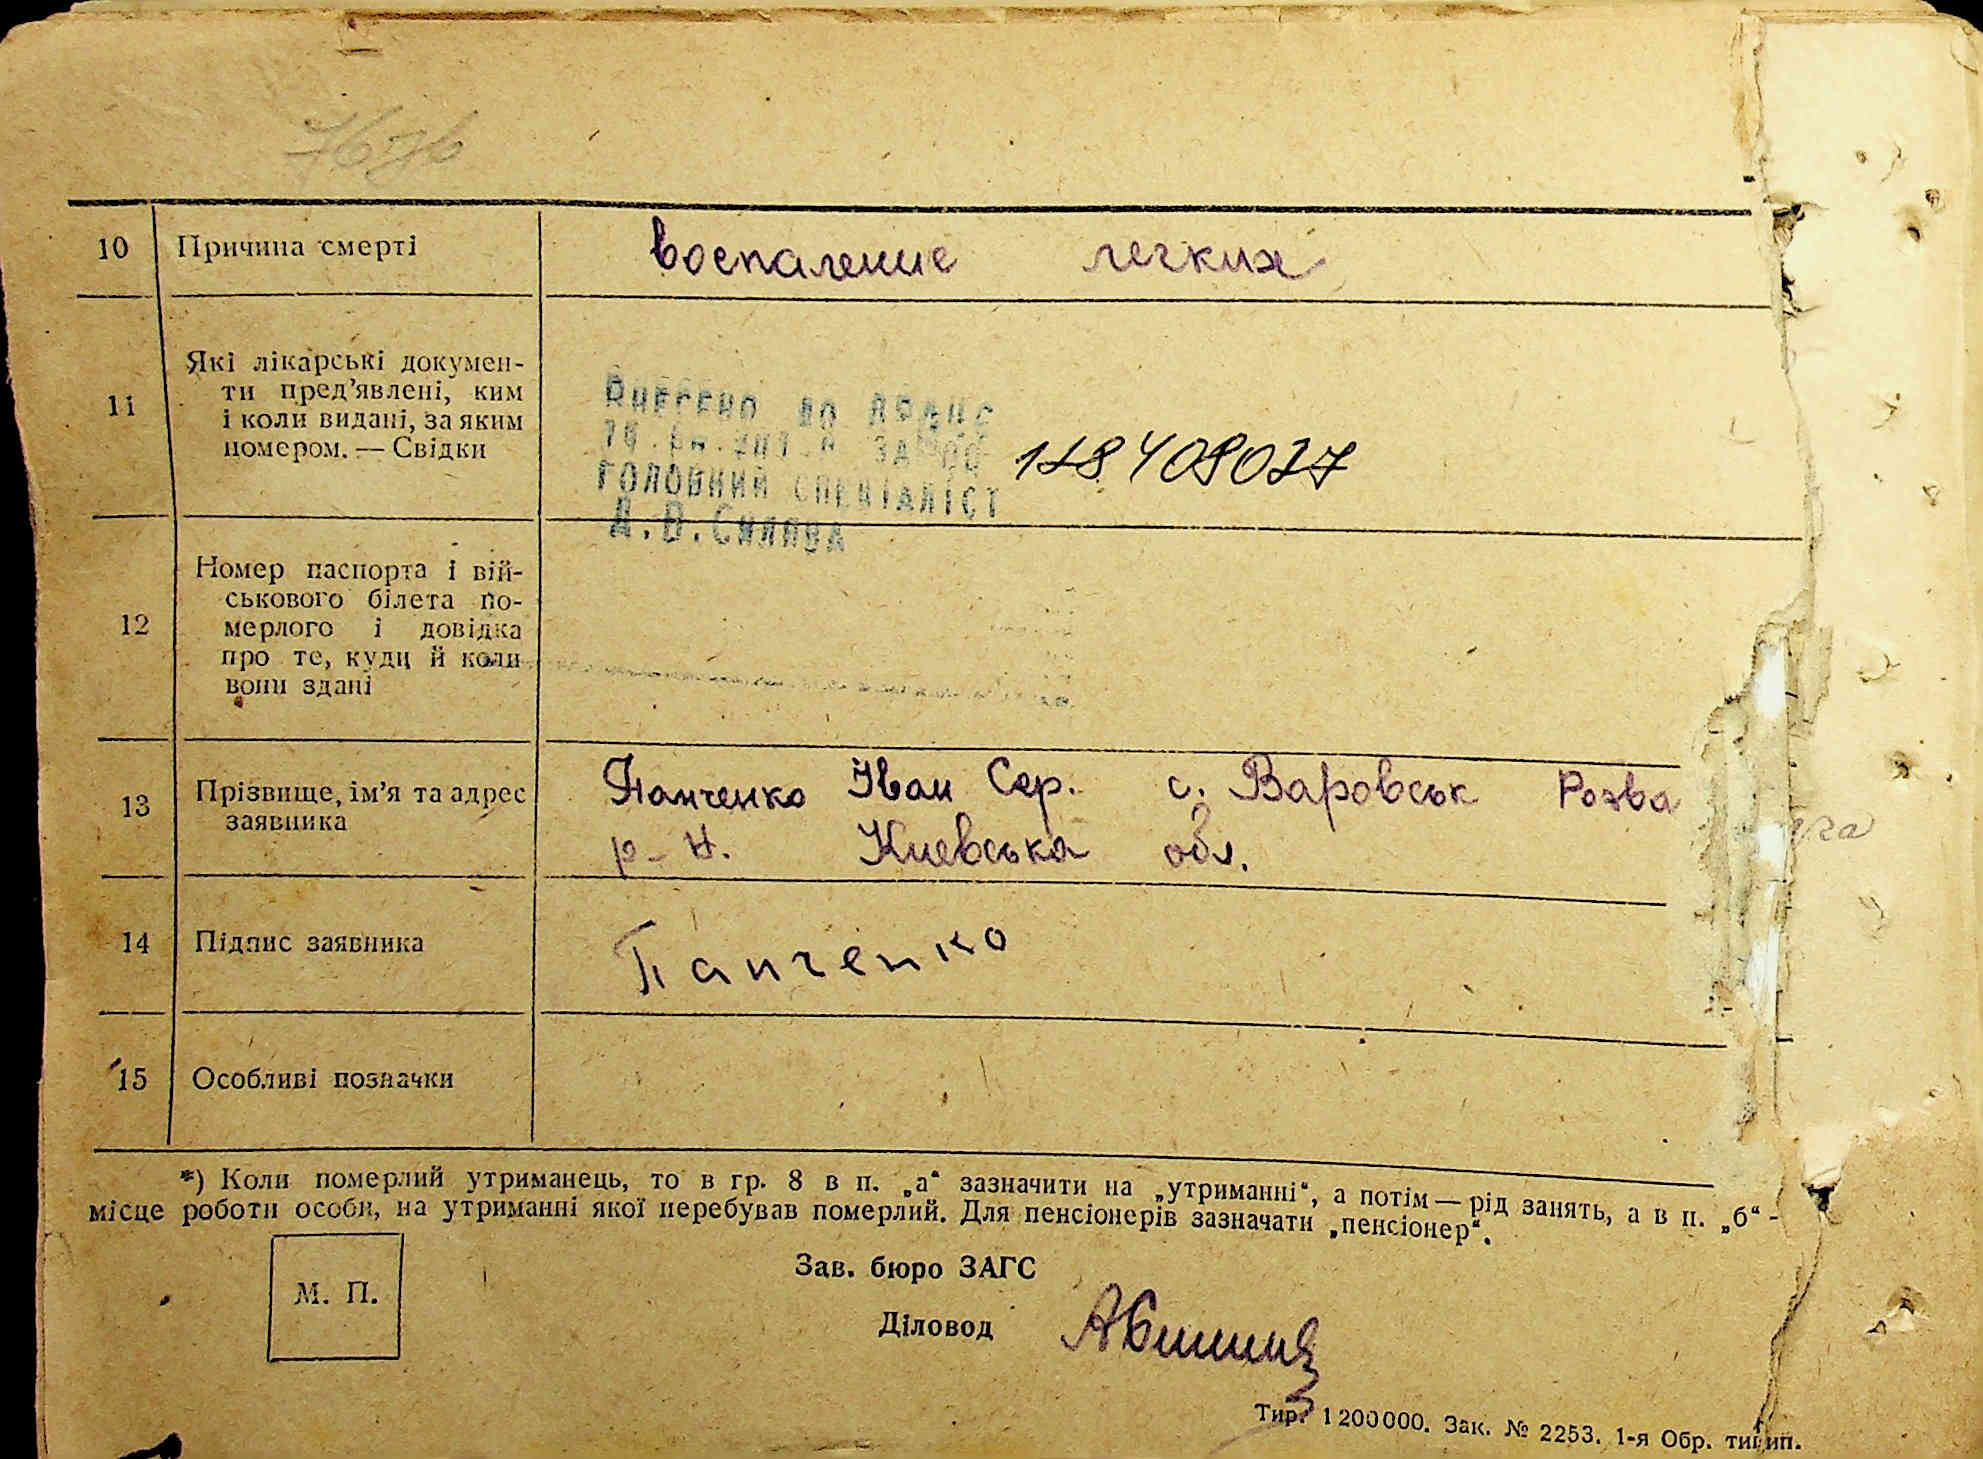 7676
10 Причина смерті воспаление легких
11 Які лікарські докумен-
ти пред'явлені, ким
і коли видані, за яким
номером. — Свідки
Внесено до ДРАЦС
за
Головний спеціаліст
118409027
12 Номер паспорта і вій-
ськового білета по-
мерлого і довідка
про те, куди й коли
вони здані
13 Прізвище, ім'я та адрес
заявника
Панченко Іван Сер. с. Варовськ Розва
р-н. Киевська обл.
14 Підпис заявника Панченко
15 Особливі позначки
*) Коли померлий утриманець, то в гр. 8 в п. „а“ зазначити на „утриманні“, а потім — рід занять, а в п. „б“ -
місце роботи особи, на утриманні якої перебував померлий. Для пенсіонерів зазначати „пенсіонер“.
М. П.
Зав. бюро ЗАГС
Діловод
Тир. 1200000. Зак. № 2253. 1-я Обр. тип.